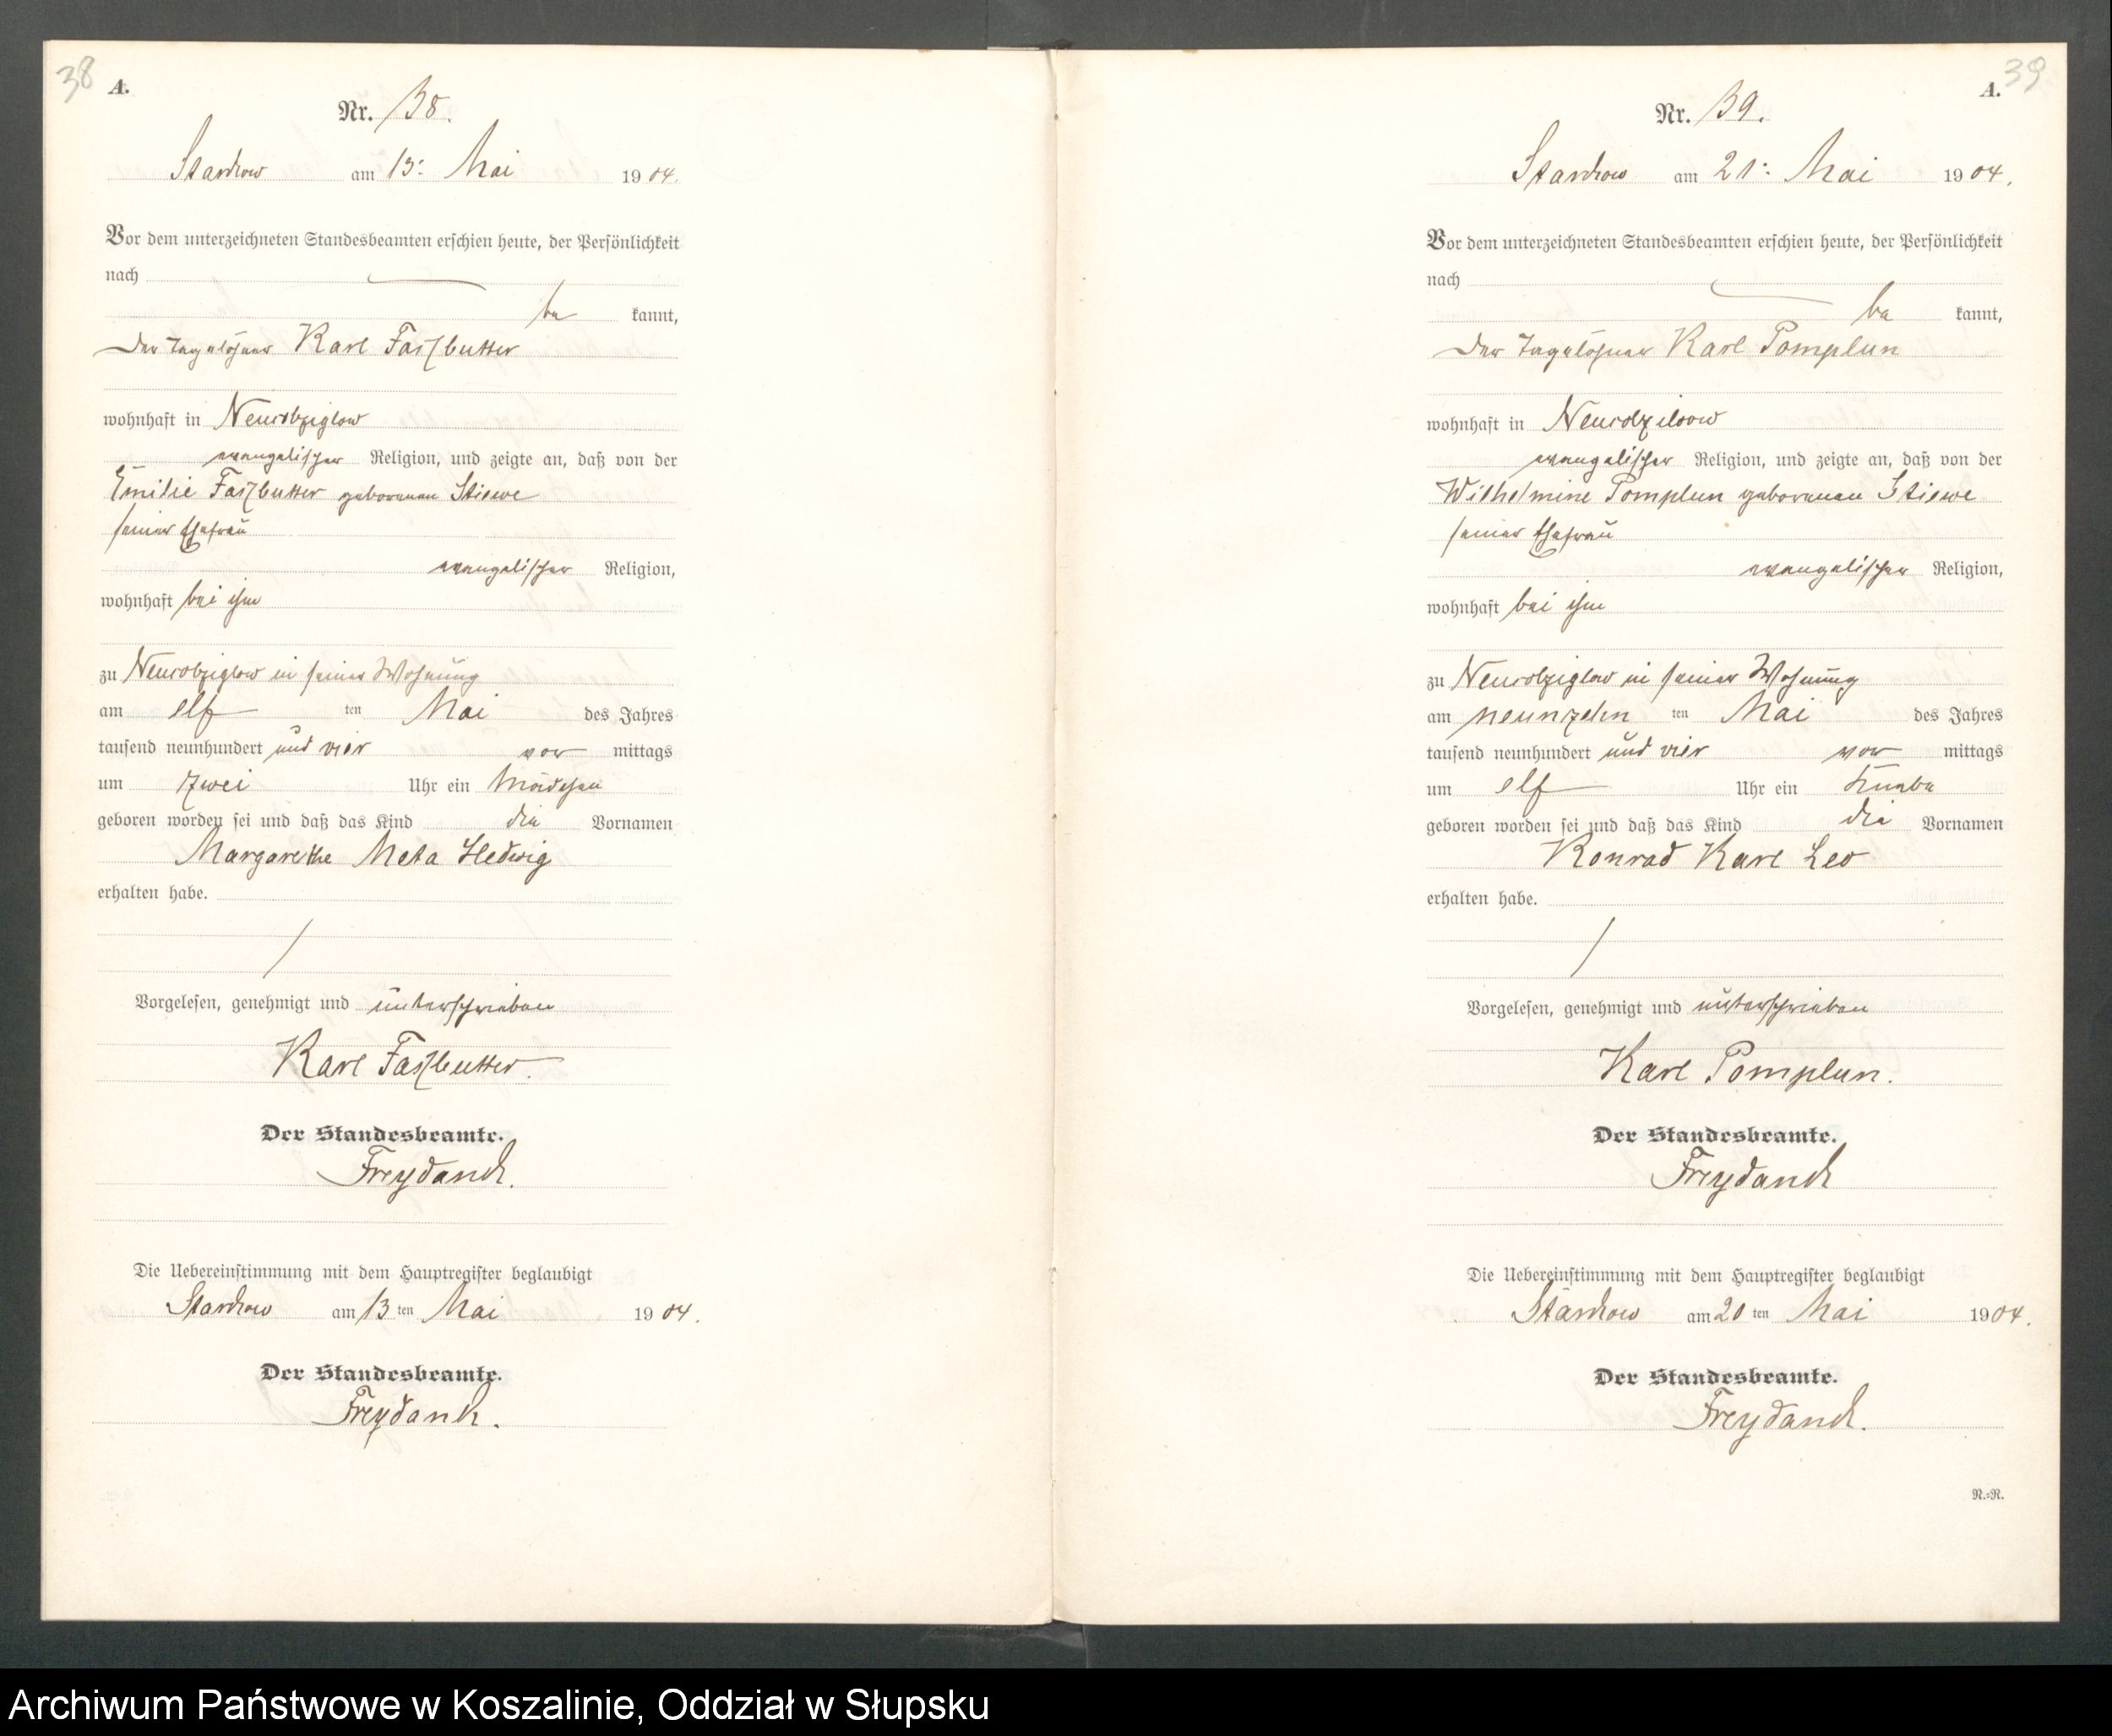 38
A.
Nr. 38.
Starkow am 13: Mai 1904.
Vor dem unterzeichneten Standesbeamten erschien heute, der Persönlichkeit
nach
be kannt,
Der Tagelöhner Karl Faßbutter
wohnhaft in Neurobziglow
evangelischer Religion, und zeigte an, daß von der
Emilie Faßbutter geborenen Stiewe
seiner Ehefrau
evangelischer Religion,
wohnhaft bei ihm
zu Neurobziglow in seiner Wohnung
am elf ten Mai des Jahres
tausend neunhundert und vier vor mittags
um zwei Uhr ein Mädchen
geboren worden sei und daß das Kind die Vornamen
Margarethe Meta Hedwig
erhalten habe.
Vorgelesen, genehmigt und unterschrieben
Karl Faßbutter.
Der Standesbeamte.
Freydanck.
Die Uebereinstimmung mit dem Hauptregister beglaubigt
Starkow am 13 ten Mai 1904.
Der Standesbeamte.
Freydank.
39
A.
Nr. 39.
Starkow am 21: Mai 1904.
Vor dem unterzeichneten Standesbeamten erschien heute, der Persönlichkeit
nach
be kannt,
Der Tagelöhner Karl Pomplun
wohnhaft in
evangelischer Religion, und zeigte an, daß von der
Wilhelmine Pomplun geborenen Stiewe
seiner Ehefrau
evangelischer Religion,
wohnhaft bei ihm
zu Neurobziglow in seiner Wohnung
am neunzehn ten Mai des Jahres
tausend neunhundert und vier vor mittags
um elf Uhr ein Knabe
geboren worden sei und daß das Kind die Vornamen
Konrad Karl Leo
erhalten habe.
Vorgelesen, genehmigt und unterschrieben
Karl Pomplun.
Der Standesbeamte.
Freydanck
Die Uebereinstimmung mit dem Hauptregister beglaubigt
Starkow am 20 ten Mai 1904.
Der Standesbeamte.
Freydanck.
R.=R.
Archiwum Państwowe w Koszalinie, Oddział w Słupsku